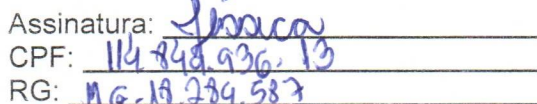 Assinatura: Jéssica
CPF: 114.848.936-13
RG: MG-18.784.587